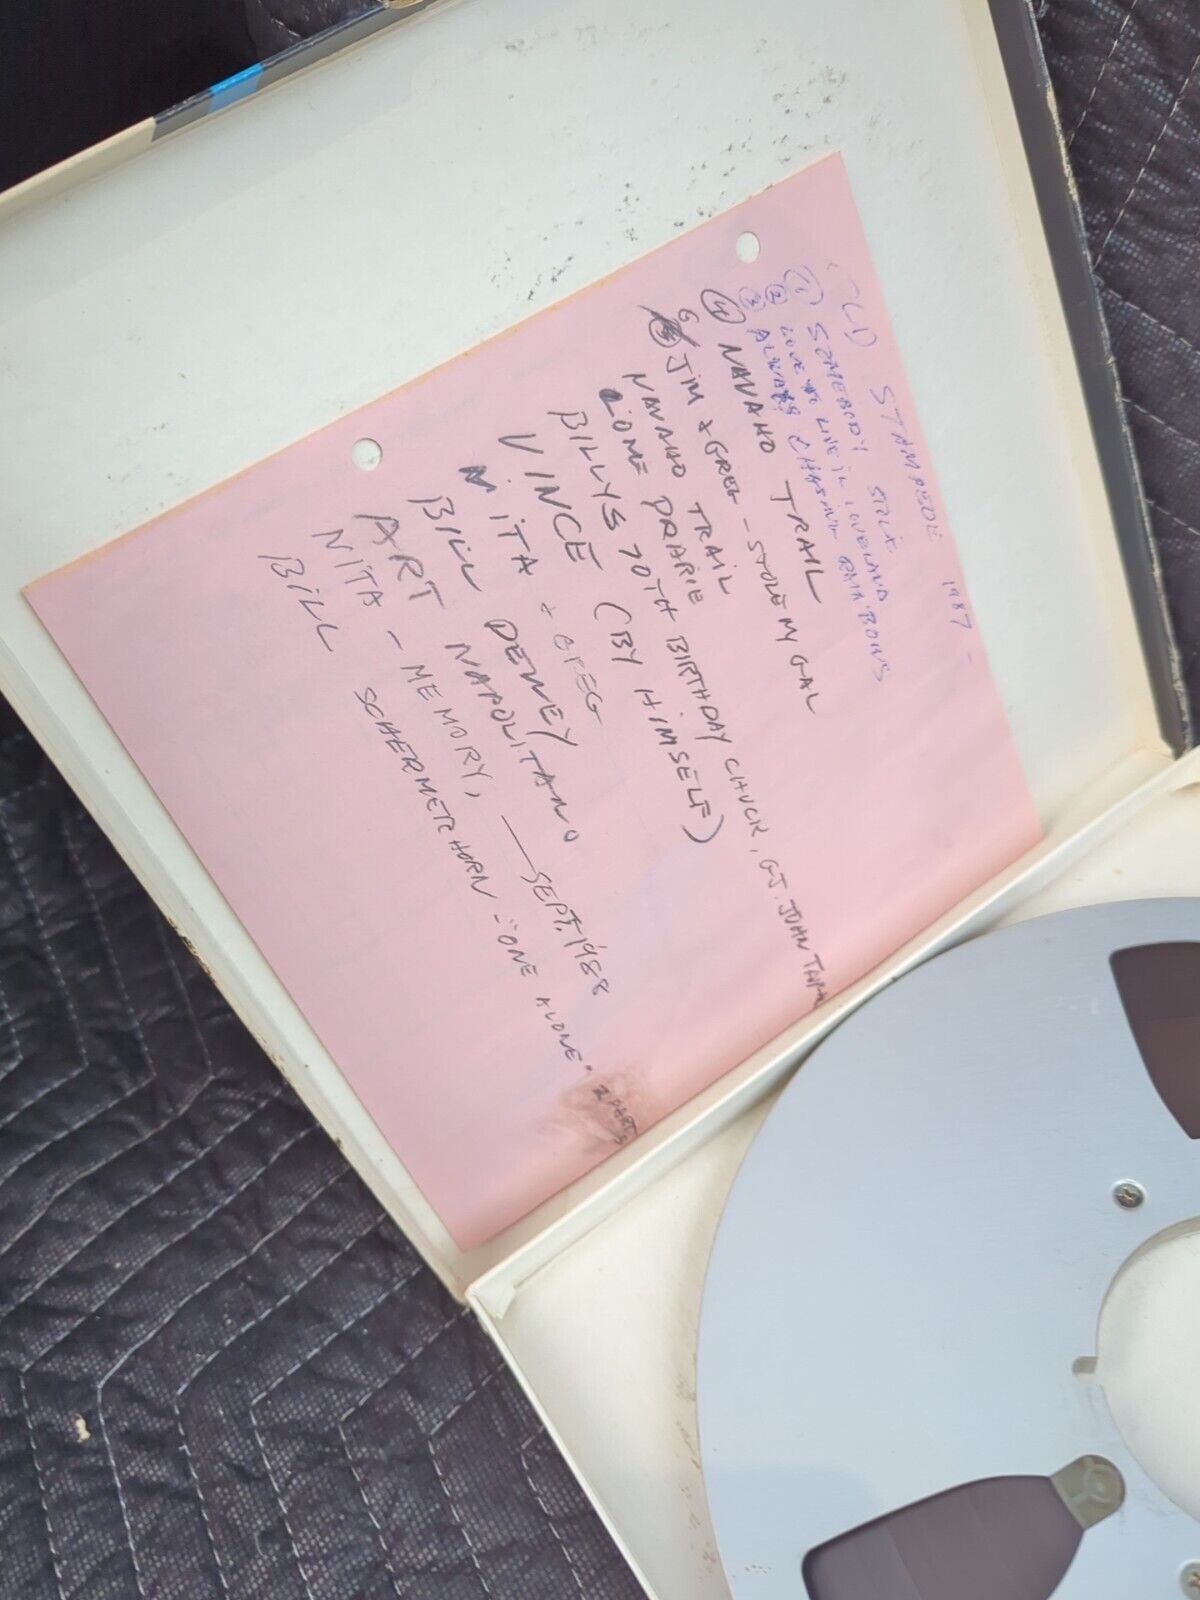 STAMPEDE 1987 -
① SOMEBODY STOLE
② LOVE TO LIVE IN LOVELAND
③ ALWAYS CHASING RAINBOWS
④ NAVAHO TRAIL
6 JIM & GREG - STOLE MY GAL
NAVAHO TRAIL
LONE PRARIE
BILLYS 70TH BIRTHDAY CHUCK, G.J. JOHN
VINCE (BY HIMSELF)
NITA & GREG
BILL DEWEY
ART NAPOLITANO
NITA - MEMORY, — SEPT. 1988
BILL SCHERMERHORN - "ONE ALONE" 2 PARTS